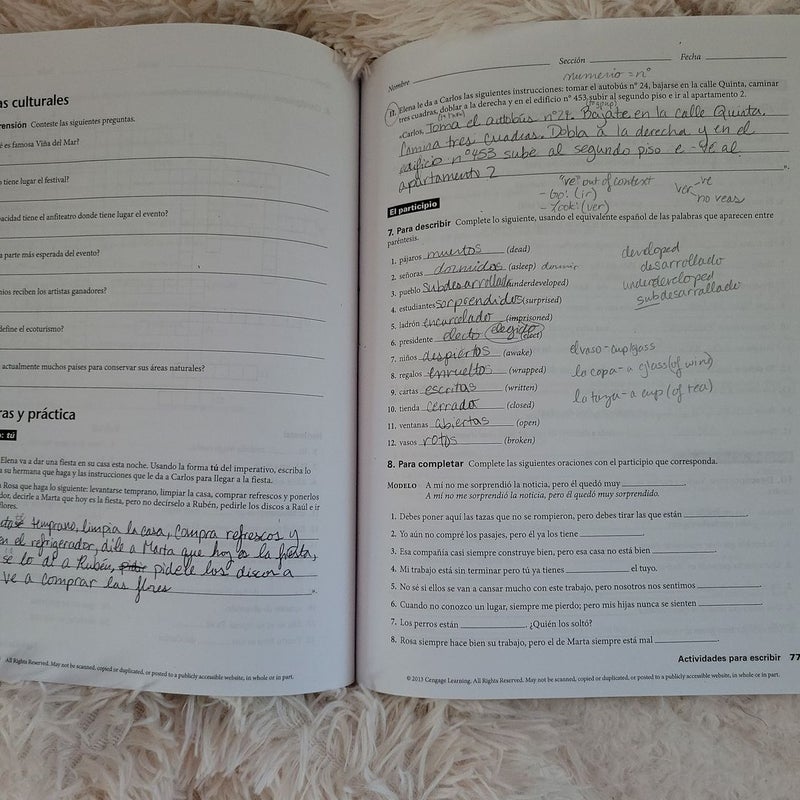 as culturales
ensión Conteste las siguientes preguntas.
é es famosa Viña del Mar?
o tiene lugar el festival?
acidad tiene el anfiteatro donde tiene lugar el evento?
a parte más esperada del evento?
nios reciben los artistas ganadores?
define el ecoturismo?
actualmente muchos países para conservar sus áreas naturales?
ras y práctica
o: tú
Elena va a dar una fiesta en su casa esta noche. Usando la forma tú del imperativo, escriba lo
a su hermana que haga y las instrucciones que le da a Carlos para llegar a la fiesta.
Rosa que haga lo siguiente: levantarse temprano, limpiar la casa, comprar refrescos y ponerlos
dor, decirle a Marta que hoy es la fiesta, pero no decírselo a Rubén, pedirle los discos a Raúl e ir
lores.
temprano, limpia la casa, compra refrescos y
en el refrigerador, dile a Marta que hoy es la fiesta,
se lo di a Rubén, pidele los discos a
ve a comprar las flores ".
All Rights Reserved. May not be scanned, copied or duplicated, or posted to a publicly accessible website, in whole or in part.
Nombre Sección Fecha
numerio = nº
B. Elena le da a Carlos las siguientes instrucciones: tomar el autobús n° 24, bajarse en la calle Quinta, caminar
tres cuadras, doblar a la derecha y en el edificio n° 453 subir al segundo piso e ir al apartamento 2.
«Carlos, Toma el autobús nº24. Bájate en la calle Quinta.
Camina tres cuadras. Dobla a la derecha y en el
edificio nº453 sube al segundo piso e ve al
apartamento 2 ".
"ve" out of context
- Go! (ir)
- Look! (ver)
ver - ve
no veas
El participio
7. Para describir Complete lo siguiente, usando el equivalente español de las palabras que aparecen entre
paréntesis.
1. pájaros muertos (dead)
2. señoras dormidos (asleep) dormir
3. pueblo subdesarrollado (underdeveloped)
4. estudiantes sorprendidos (surprised)
5. ladrón encarcelado (imprisoned)
6. presidente electo elegido (elect)
7. niños despiertos (awake)
8. regalos envueltos (wrapped)
9. cartas escritas (written)
10. tienda cerrada (closed)
11. ventanas abiertas (open)
12. vasos rotos (broken)
developed
desarrollado
underdeveloped
subdesarrollado
el vaso - cup/glass
la copa - a glass (of wine)
la taza - a cup (of tea)
8. Para completar Complete las siguientes oraciones con el participio que corresponda.
MODELO A mí no me sorprendió la noticia, pero él quedó muy
A mí no me sorprendió la noticia, pero él quedó muy sorprendido.
1. Debes poner aquí las tazas que no se rompieron, pero debes tirar las que están .
2. Yo aún no compré los pasajes, pero él ya los tiene .
3. Esa compañía casi siempre construye bien, pero esa casa no está bien .
4. Mi trabajo está sin terminar pero tú ya tienes el tuyo.
5. No sé si ellos se van a cansar mucho con este trabajo, pero nosotros nos sentimos .
6. Cuando no conozco un lugar, siempre me pierdo; pero mis hijas nunca se sienten .
7. Los perros están . ¿Quién los soltó?
8. Rosa siempre hace bien su trabajo, pero el de Marta siempre está mal .
Actividades para escribir 77
© 2013 Cengage Learning. All Rights Reserved. May not be scanned, copied or duplicated, or posted to a publicly accessible website, in whole or in part.